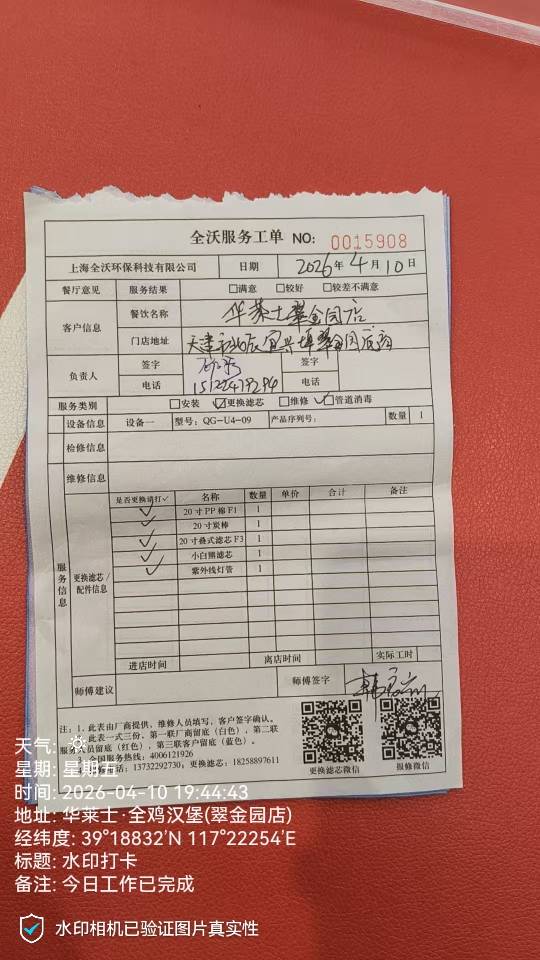 全沃服务工单 NO: 0015908
上海全沃环保科技有限公司 日期 2026年4月10日
餐厅意见 服务结果 □满意 □较好 □较差不满意
客户信息 餐饮名称 华莱士翠金园店
门店地址 天津市北辰宜兴埠翠金园底商
负责人 签字 签字
电话 电话
服务类别 □安装 ☑更换滤芯 □维修 ☑管道消毒
设备信息 设备一 型号: QG-U4-09 产品序列号: 数量 1
检修信息
维修信息
服务信息 更换滤芯/配件信息
是否更换请打✓ 名称 数量 单价 合计 备注
✓ 20寸PP棉F1 1
✓ 20寸炭棒 1
✓ 20寸叠式滤芯F3 1
✓ 小白熊滤芯 1
✓ 紫外线灯管 1
进店时间 离店时间 实际工时
师傅建议 师傅签字
注: 1. 此表由厂商提供, 维修人员填写, 客户签字确认。
2. 此表一式三份, 第一联厂商留底(白色), 第二联
服务人员留底(红色), 第三联客户留底(蓝色)。
3. 全国服务热线: 4006121926
电话: 13732292730; 更换滤芯: 18258897611
更换滤芯微信 报修微信
天气:
星期: 星期五
时间: 2026-04-10 19:44:43
地址: 华莱士·全鸡汉堡(翠金园店)
经纬度: 39°18832′N 117°22254′E
标题: 水印打卡
备注: 今日工作已完成
水印相机已验证图片真实性